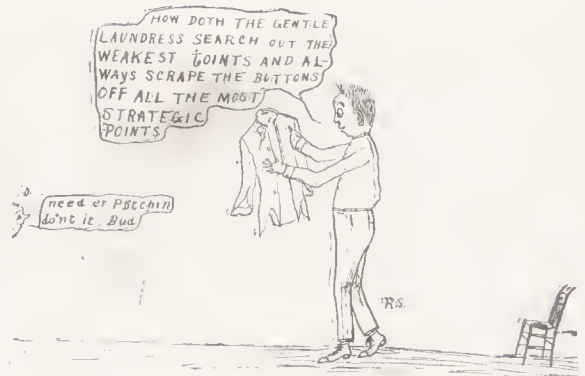 HOW DOTH THE GENTLE
LAUNDRESS SEARCH OUT THE
WEAKEST ŧOINTS AND AL-
WAYS SCRAPE THE BUTTONS
OFF ALL THE MOST
STRATEGIC
POINTS.
need er Patchin
do'nt it. Bud
R.S.